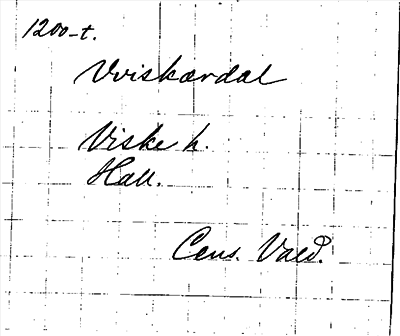 1200-t.
Vviskærdal
Viske h.
Hall.
Cens. Vald.